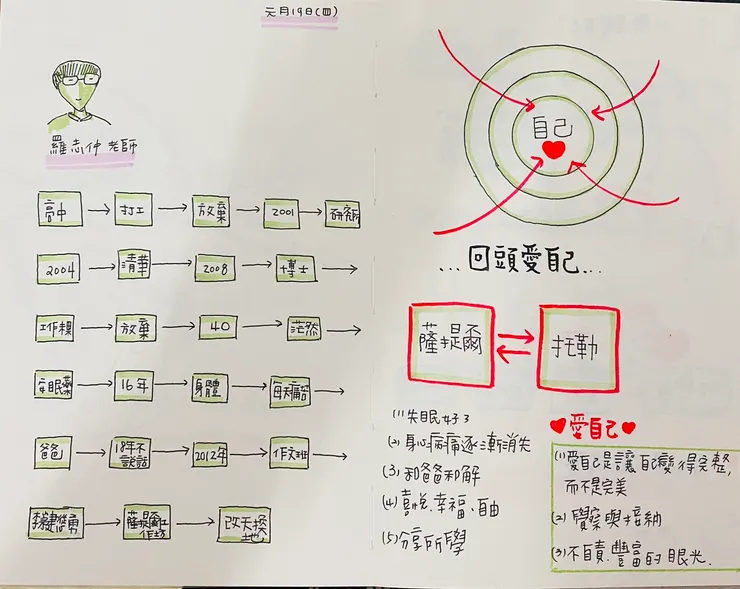 元月19日(四)
羅志仲老師
高中 → 打工 → 放棄 → 2001 → 研究所
2004 → 清華 → 2008 → 博士 →
工作賴 → 放棄 → 40 → 茫然 →
安眠藥 → 16年 → 身體 → 每天痛苦 →
爸爸 → 18年不說話 → 2012年 → 作文班 →
李崇建 → 薩提爾工作坊 → 改天換地
自己
...回頭愛自己...
薩提爾
托勒
(1)失眠好了
(2)身心病痛逐漸消失
(3)和爸爸和解
(4)喜悅、幸福、自由
(5)分享所學
愛自己
(1)愛自己是讓自己變得完整,
而不是完美
(2)覺察與接納
(3)不自責.豐富的眼光.